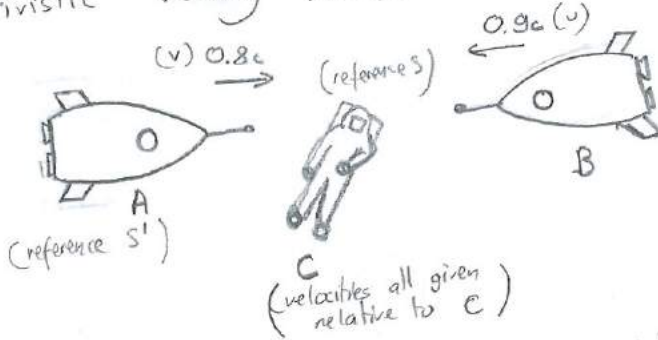 (v) 0.8c
0.9c (u)
(reference S)
A
(reference S')
B
C
(velocities all given
relative to C)